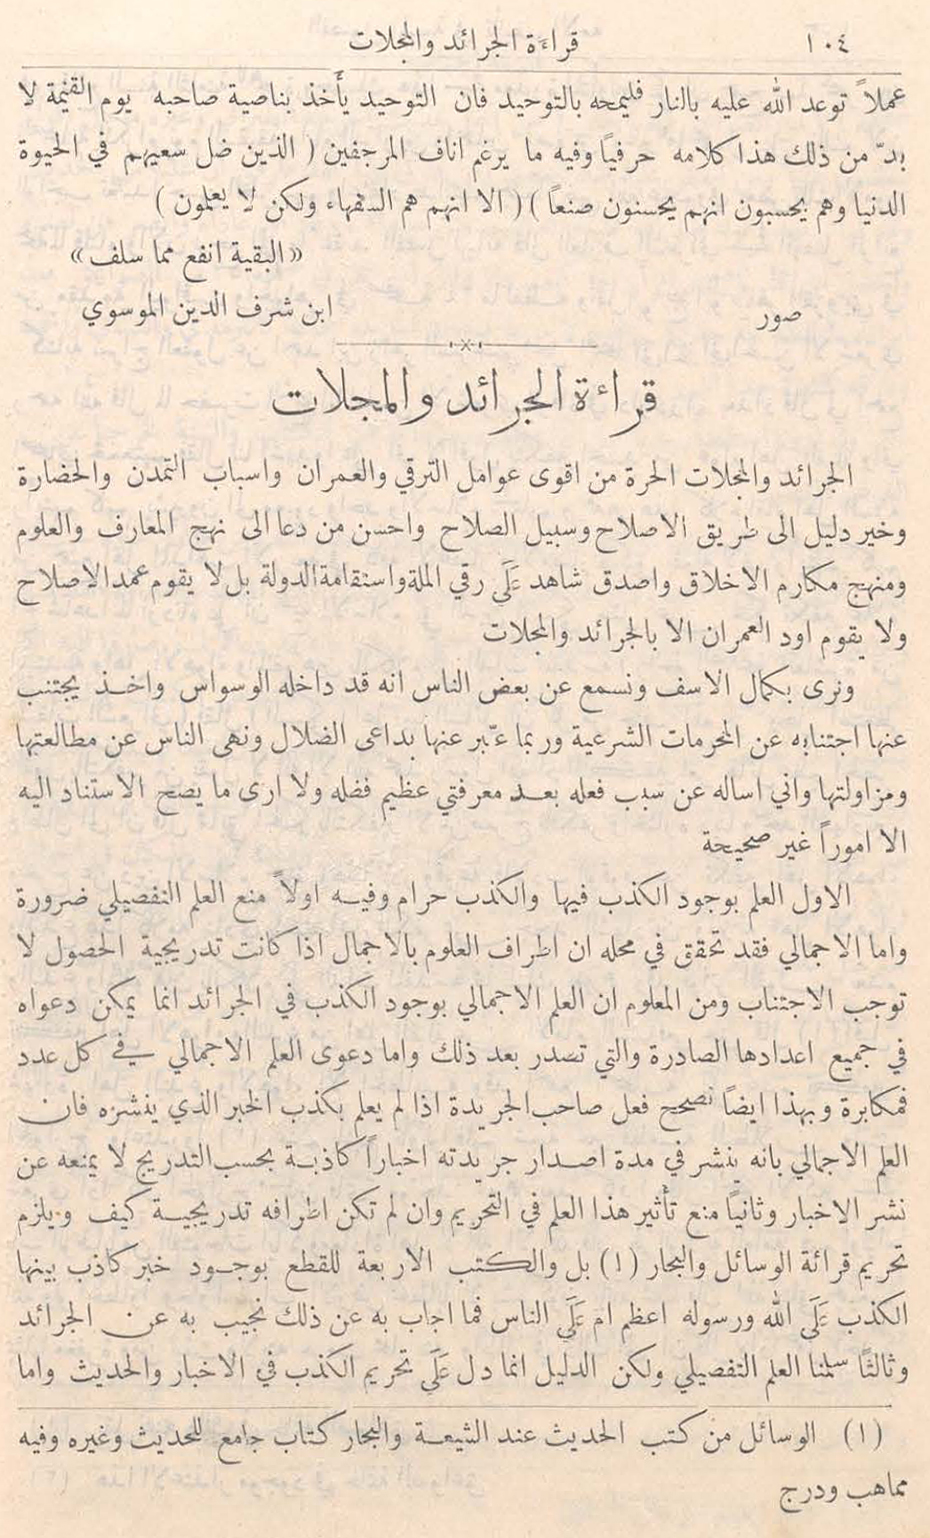 ١٠٤ قراءة الجرائد والمجلات
عملاً توعد الله عليه بالنار فليمحه بالتوحيد فان التوحيد يأخذ بناصية صاحبه يوم القيمة لا
بدّ من ذلك هذا كلامه حرفياً وفيه ما يرغم اناف المرجفين ( الذين ضل سعيهم في الحيوة
الدنيا وهم يحسبون انهم يحسنون صنعاً ) ( الا انهم هم السفهاء ولكن لا يعلمون )
«البقية انفع مما سلف»
صور ابن شرف الدين الموسوي
قراءة الجرائد والمجلات
الجرائد والمجلات الحرة من اقوى عوامل الترقي والعمران واسباب التمدن والحضارة
وخير دليل الى طريق الاصلاح وسبيل الصلاح واحسن من دعا الى نهج المعارف والعلوم
ومنهج مكارم الاخلاق واصدق شاهد عَلَى رقي الملة واستقامة الدولة بل لا يقوم عمد الاصلاح
ولا يقوم اود العمران الا بالجرائد والمجلات
ونرى بكمال الاسف ونسمع عن بعض الناس انه قد داخله الوسواس واخذ يجتنب
عنها اجتنابه عن المحرمات الشرعية وربما عبّر عنها بداعى الضلال ونهى الناس عن مطالعتها
ومزاولتها واني اساله عن سبب فعله بعد معرفتي عظيم فضله ولا ارى ما يصح الاستناد اليه
الا اموراً غير صحيحة
الاول العلم بوجود الكذب فيها والكذب حرام وفيه اولاً منع العلم التفصيلي ضرورة
واما الاجمالي فقد تحقق في محله ان اطراف العلوم بالاجمال اذا كانت تدريجية الحصول لا
توجب الاجتناب ومن المعلوم ان العلم الاجمالي بوجود الكذب في الجرائد انما يمكن دعواه
في جميع اعدادها الصادرة والتي تصدر بعد ذلك واما دعوى العلم الاجمالي في كل عدد
فمكابرة وبهذا ايضاً نصحح فعل صاحب الجريدة اذا لم يعلم بكذب الخبر الذي ينشره فان
العلم الاجمالي بانه ينشر في مدة اصدار جريدته اخباراً كاذبة بحسب التدريج لا يمنعه عن
نشر الاخبار وثانياً منع تأثير هذا العلم في التحريم وان لم تكن اطرافه تدريجية كيف ويلزم
تحريم قرائة الوسائل والبحار (١) بل والكتب الاربعة للقطع بوجود خبر كاذب بينها
الكذب عَلَى الله ورسوله اعظم ام عَلَى الناس فما اجاب به عن ذلك نجيب به عن الجرائد
وثالثاً سلمنا العلم التفصيلي ولكن الدليل انما دل عَلَى تحريم الكذب في الاخبار والحديث واما
(١) الوسائل من كتب الحديث عند الشيعة والبحار كتاب جامع للحديث وغيره وفيه
مماهب ودرج